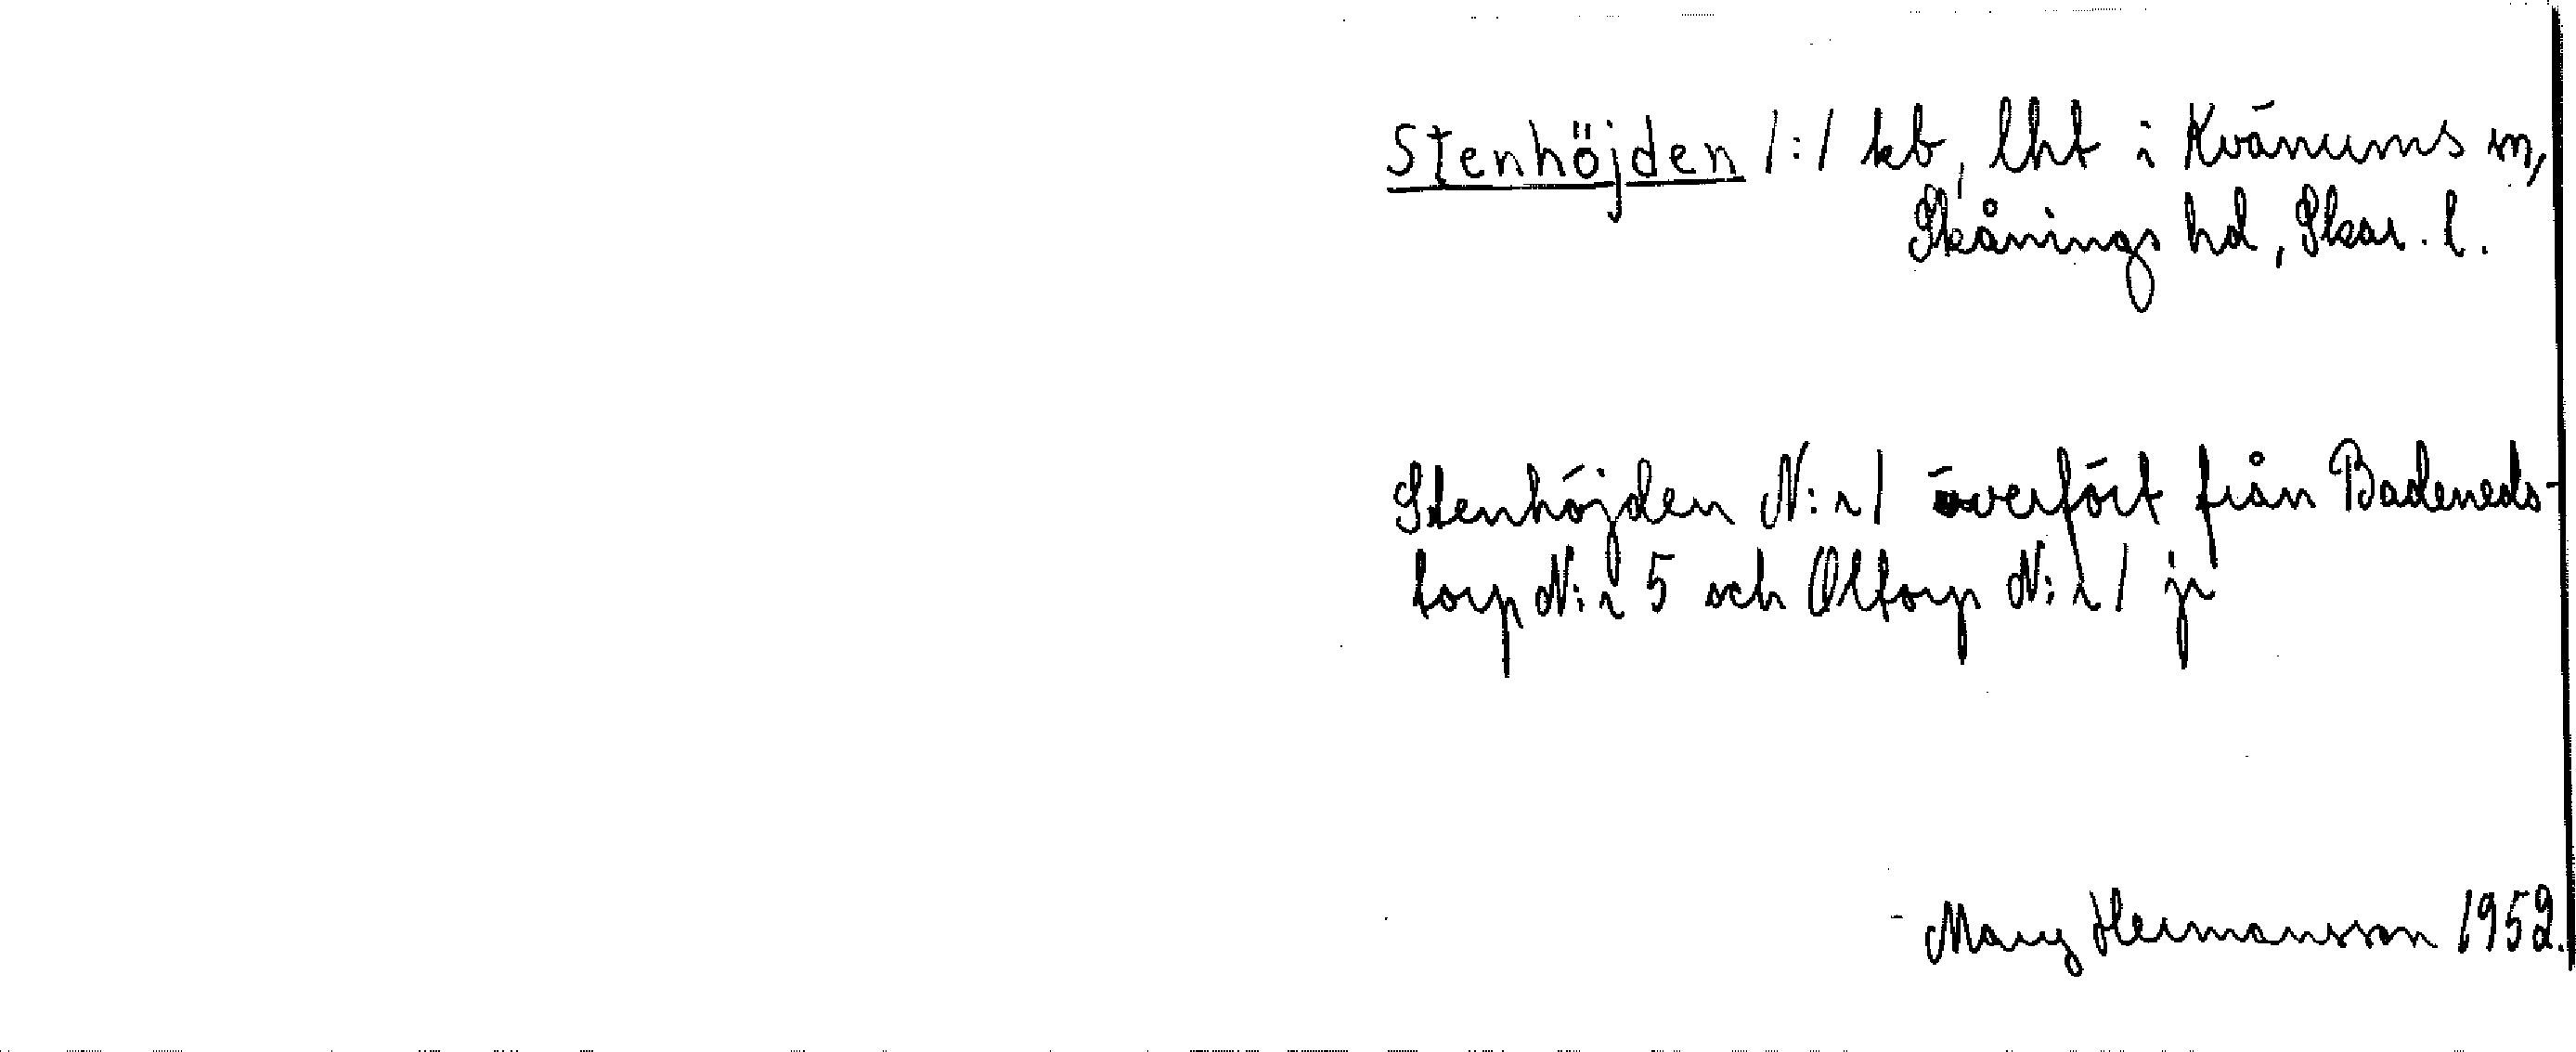 Stenhöjden 1:1 kb, lht i Kvänums sn,
Skånings hd, Skar. l.
Stenhöjden N:r 1 överfört från Badeneds-
torp N:r 5 och Oltorp N:r 1 jr
Mary Hermansson 1952.